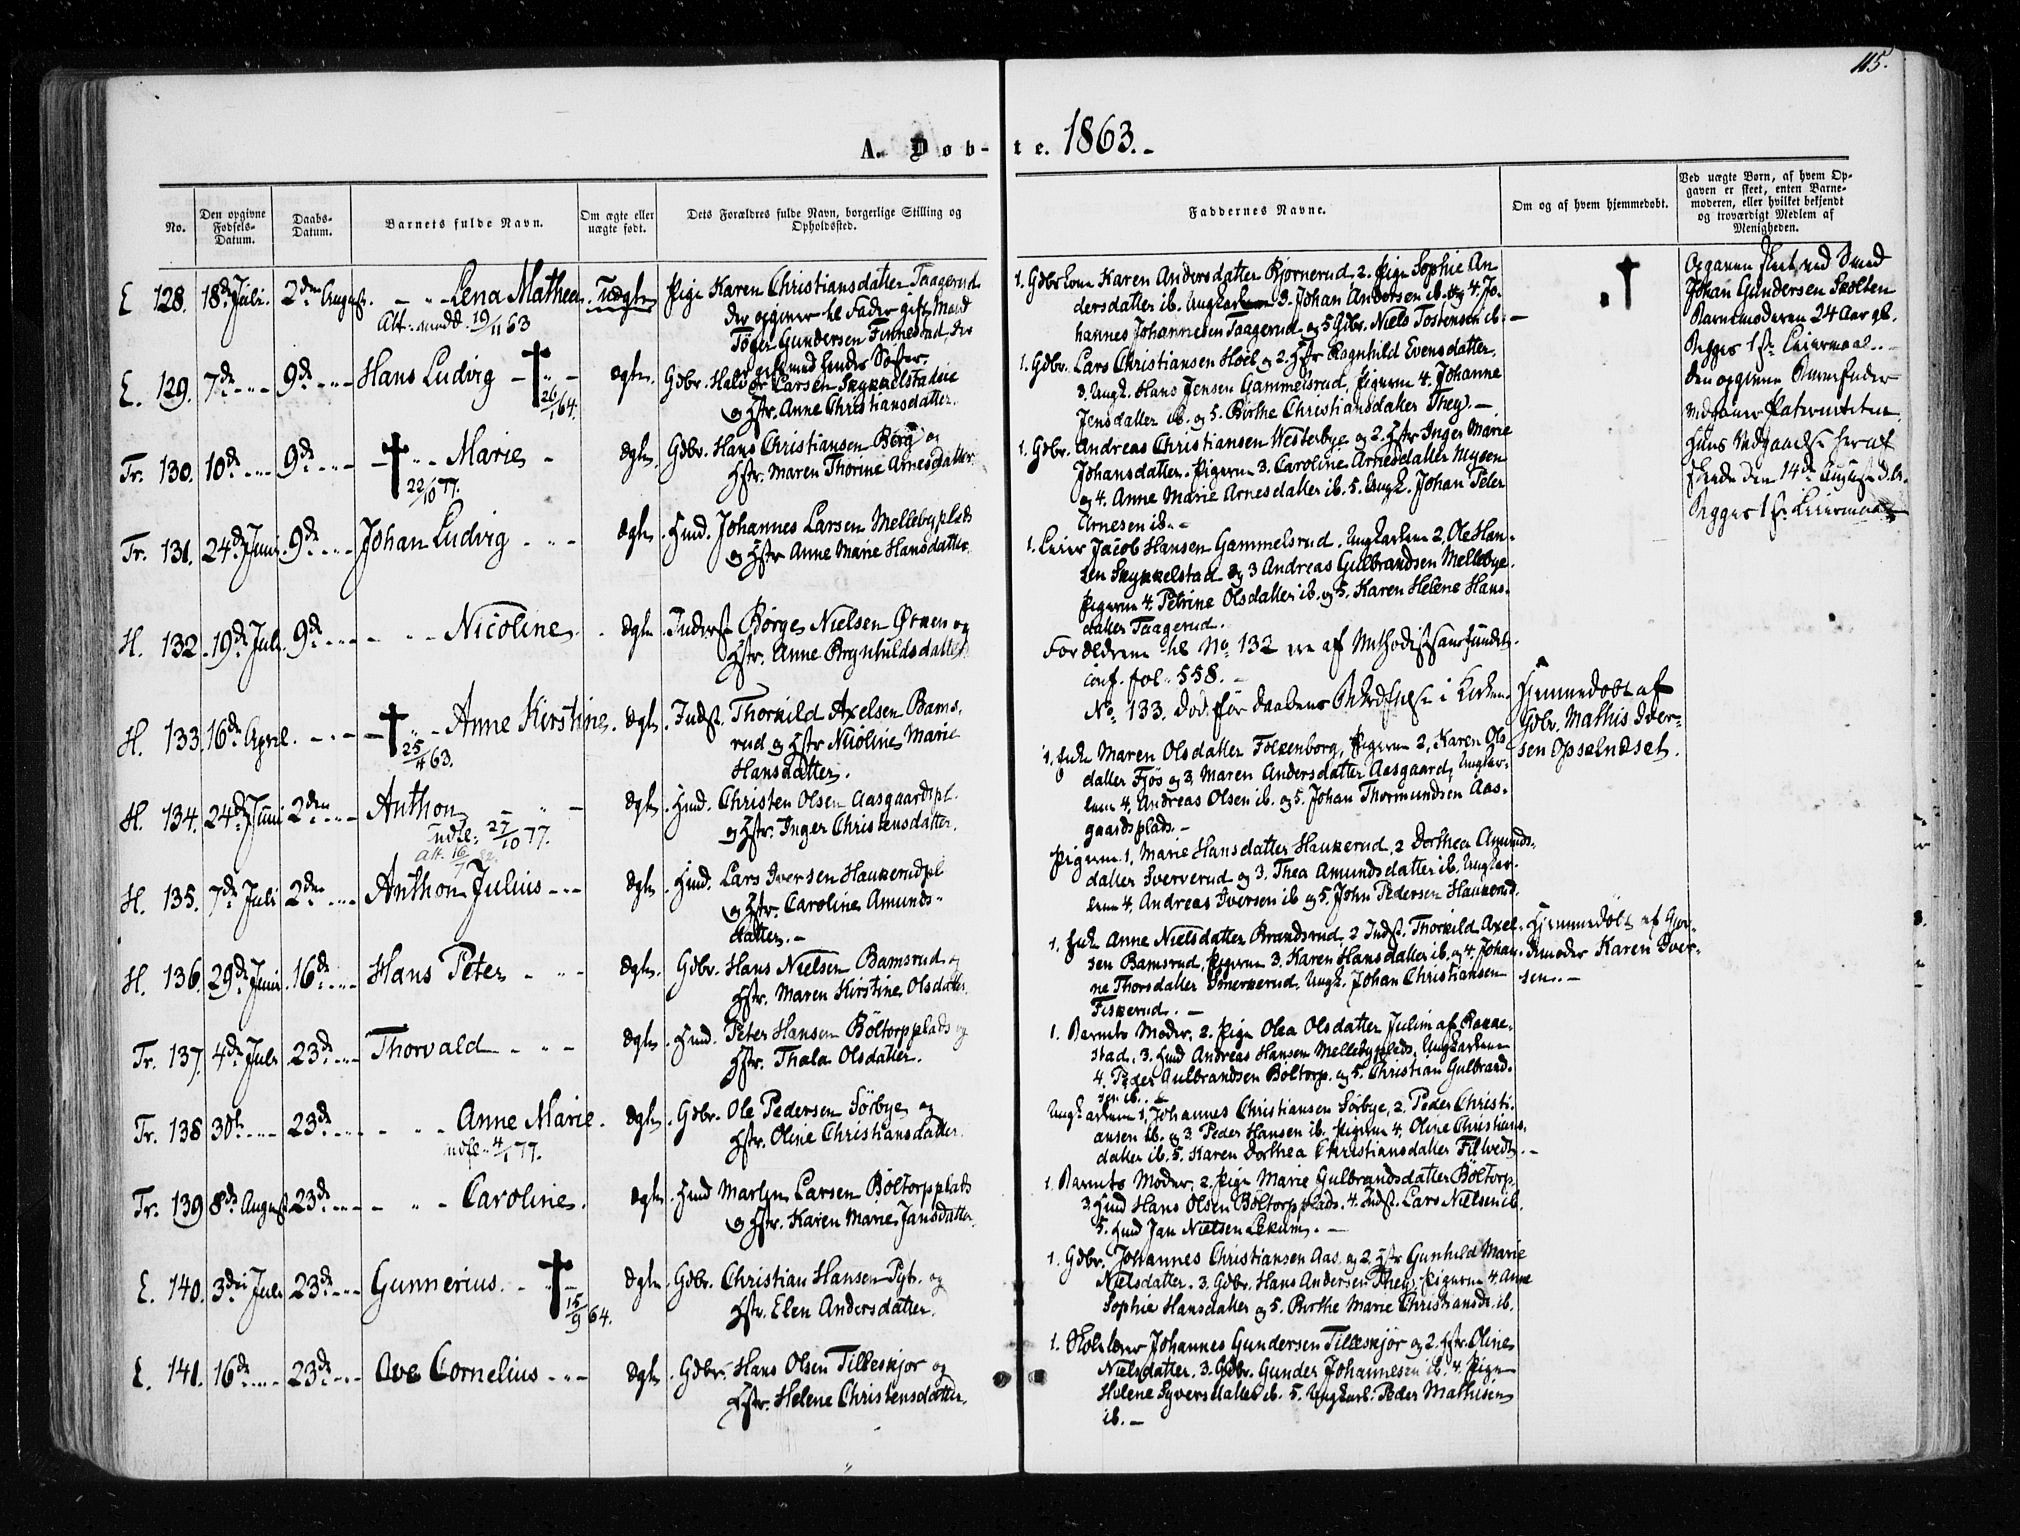 115.
A. Døb- te. 1863.-
No.
Den opgivne Fødsels-Datum.
Daabs-Datum.
Barnets fulde Navn.
Om ægte eller uægte født.
Dets Forældres fulde Navn, borgerlige Stilling og Opholdssted.
Faddernes Navne.
Om og af hvem hjemmedøbt.
Ved uægte Børn, af hvem Opgaven er skeet, enten Barnemoderen, eller hvilket bekjendt og troværdigt Medlem af Menigheden.
E 128. 18de Juli. 2den August. - " - Lena Mathea. Uægte
Att. medd. 19/11 63
Pige Karen Christiansdatter Taagerud
der opgiver til Fader gift Mand
Tøger Gundersen Finnestad, der
er gift med hendes Søster.
1. Gdbr Kone Karen Andersdatter Bjørnerud, 2. Pige Sophie An
dersdatter ib. Ungkarlene 3. Johan Andersen ib. og 4. Jo-
hannes Johannesen Taagerud og 5 Gdbr. Niels Tostensen ib. -
Opgaven skeet ved Smed
Johan Gundersen Skolten
Barnemoderen 24 Aar gl.
Begges 1ste Leiermaal.
Den opgivne Barnefader
vedgaaer Paterniteten
Hans Vedgaaelse heraf
skede den 14de August d. A.
Begges 1ste Leiermaal
E. 129. 7de " 9de " Hans Ludvig - " - ægte.
26/1 64.
Gdbr. Halvor Larsen Skykkelstadeie
og Hstr. Anne Christiansdatter.
1. Gdbr. Lars Christiansen Hoel og 2. Hstr Ragnhild Evensdatter.
3. Ungk. Hans Jensen Gammelsrud, Pigerne 4. Johanne
Jensdatter ib. og 5. Birthe Christiansdatter They. -
Tr. 130. 10de " 9de " - " - Marie - ægte.
22/10 77.
Gdbr. Hans Christiansen Berg og
Hstr. Maren Thorine Arnesdatter
1. Gdbr. Andreas Christiansen Westerbye og 2. Hstr Inger Marie
Johansdatter. Pigerne 3. Caroline Arnesdatter Mysen
og 4. Anne Marie Arnesdatter ib. 5. Ungk. Johan Peter
Arnesen ib. -
Tr. 131. 24de Juni. 9de " Johan Ludvig - " - ægte.
Husmd. Johannes Larsen Mellebyplads
og Hstr Anne Marie Hansdatter.
1. Leier Jacob Hansen Gammelsrud. Ungkarlene 2. Ole Han-
sen Skykkelstad og 3 Andreas Gulbrandsen Mellebye.
Pigerne 4. Petrine Olsdatter ib. og 5. Karen Helene Hans-
datter Taagerud.
H. 132. 19de Juli 9de " - " - Nicoline. ægte
Inderst Børge Nielsen Ørnen og
Hstr. Anne Brynhildsdatter
Forældrene til No 132 ere af Methodistsamfundet.
conf. fol. 558. -
H. 133. 16de April. - " - Anne Kirstine. ægte.
25/4 63.
Indst. Thorkild Axelsen Bams-
rud og Hstr Nicoline Marie
Hansdatter.
No 133. død før Daabens Bekræftelse i Kirken.
Hjemmedøbt af
Gdbr. Mathis Iver-
sen Opselndset.
H. 134. 24de Juni 2den " Anthon - " - ægte
Udfl. 27/10 77.
Christen Olsen Aasgaardspl.
og Hstr. Inger Christensdatter.
1. Enke Maren Olsdatter Folkenborg, Pigerne 2. Karen Ols
datter Fjøs og 3. Maren Andersdatter Aasgaard, Ungkar-
lene 4. Andreas Olsen ib. og 5. Johan Thormundsen Aas-
gaardsplads. -
H. 135. 7de Juli 2den " Anthon Julius - " - ægte
Husmd. Lars Iversen Haukerudpl
og Hstr. Caroline Amunds-
datter. -
Pigerne 1. Marie Hansdatter Haukerud, 2 Dorthea Amunds-
datter Sververud og 3. Thea Amundsdatter ib. Ungkar-
lene 4. Andreas Iversen ib og 5. John Pedersen Haukerud
H. 136. 29de Juni. 16de " Hans Peter - " - ægte
Gdbr. Hans Nielsen Bamsrud og
Hstr. Maren Kirstine Olsdatter.
1. Enke Anne Nielsdatter Brandsrud 2 Indst. Thorkild Axel-
sen Bamsrud, Pigerne 3. Karen Hansdatter ib. og 4. Johan-
ne Thorsdatter Smerkerud. Ungk. Johan Christiansen
Fiskerud. -
Hjemmedøbt af Gjor-
demoder Karen Iver-
sen. -
Tr. 137. 4de Juli 23de " Thorvald - " - ægte
Husmd. Peter Hansen Bøltorpplads og
Hstr. Thala Olsdatter.
1. Barnets Moder, 2. Pige Olea Olsdatter Julim af Rakke-
stad, 3. Husmd Andreas Hansen Mellebyplads, Ungkarlene
4. Peder Gulbrandsen Bøltorp og 5. Christian Gulbrand-
sen ib. -
Tr. 138 30te " 23de " - " - Anne Marie. ægte
udfl. 4/1 77.
Gdbr. Ole Pedersen Sørbye og
Hstr. Oline Christiansdatter.
Ungkarlene 1. Johannes Christiansen Sørbye, 2. Peder Christi-
ansen ib. og 3. Peder Hansen ib. Pigerne 4. Oline Christians-
datter ib. 5. Karen Dorthea Christiansdatter Filtvedt. -
Tr. 139 8de August 23de " - " - Caroline. ægte
Husmd Martin Larsen Bøltorpplads
og Hstr. Karen Marie Jansdatter.
1. Barnets Moder, 2. Pige Marie Gulbrandsdatter Bøltorp
3. Husmd Hans Olsen Bøltorpplads. 4. Indst. Lars Nielsen ib.
5. Husmd Jan Nielsen Lekum. -
E. 140. 3die Juli 23de " Gunnerius. - " - ægte
15/9 64.
Gdbr. Christian Hansen Pyt. og
Hstr. Elen Andersdatter.
1. Gdbr. Johannes Christiansen Aas og 2 Hstr Gunhild Marie
Nielsdatter. 3 Gdbr. Hans Andersen They, Pigerne 4. Anne
Sophie Hansdatter og 5. Birthe Marie Christiansdr. ib.
E. 141. 16de " 23de " Ove Cornelius - " - ægte
Gdbr. Hans Olsen Tilleskjør og
Hstr. Helene Christensdatter.
1. Skolelærer Johannes Gundersen Tilleskjør og 2. Hstr. Oline
Nielsdatter. 3. Gdbr. Gunder Johannesen ib. 4. Pige
Helene Syversdatter ib. 5. Ungkarl. Peder Mathisen
ib. -